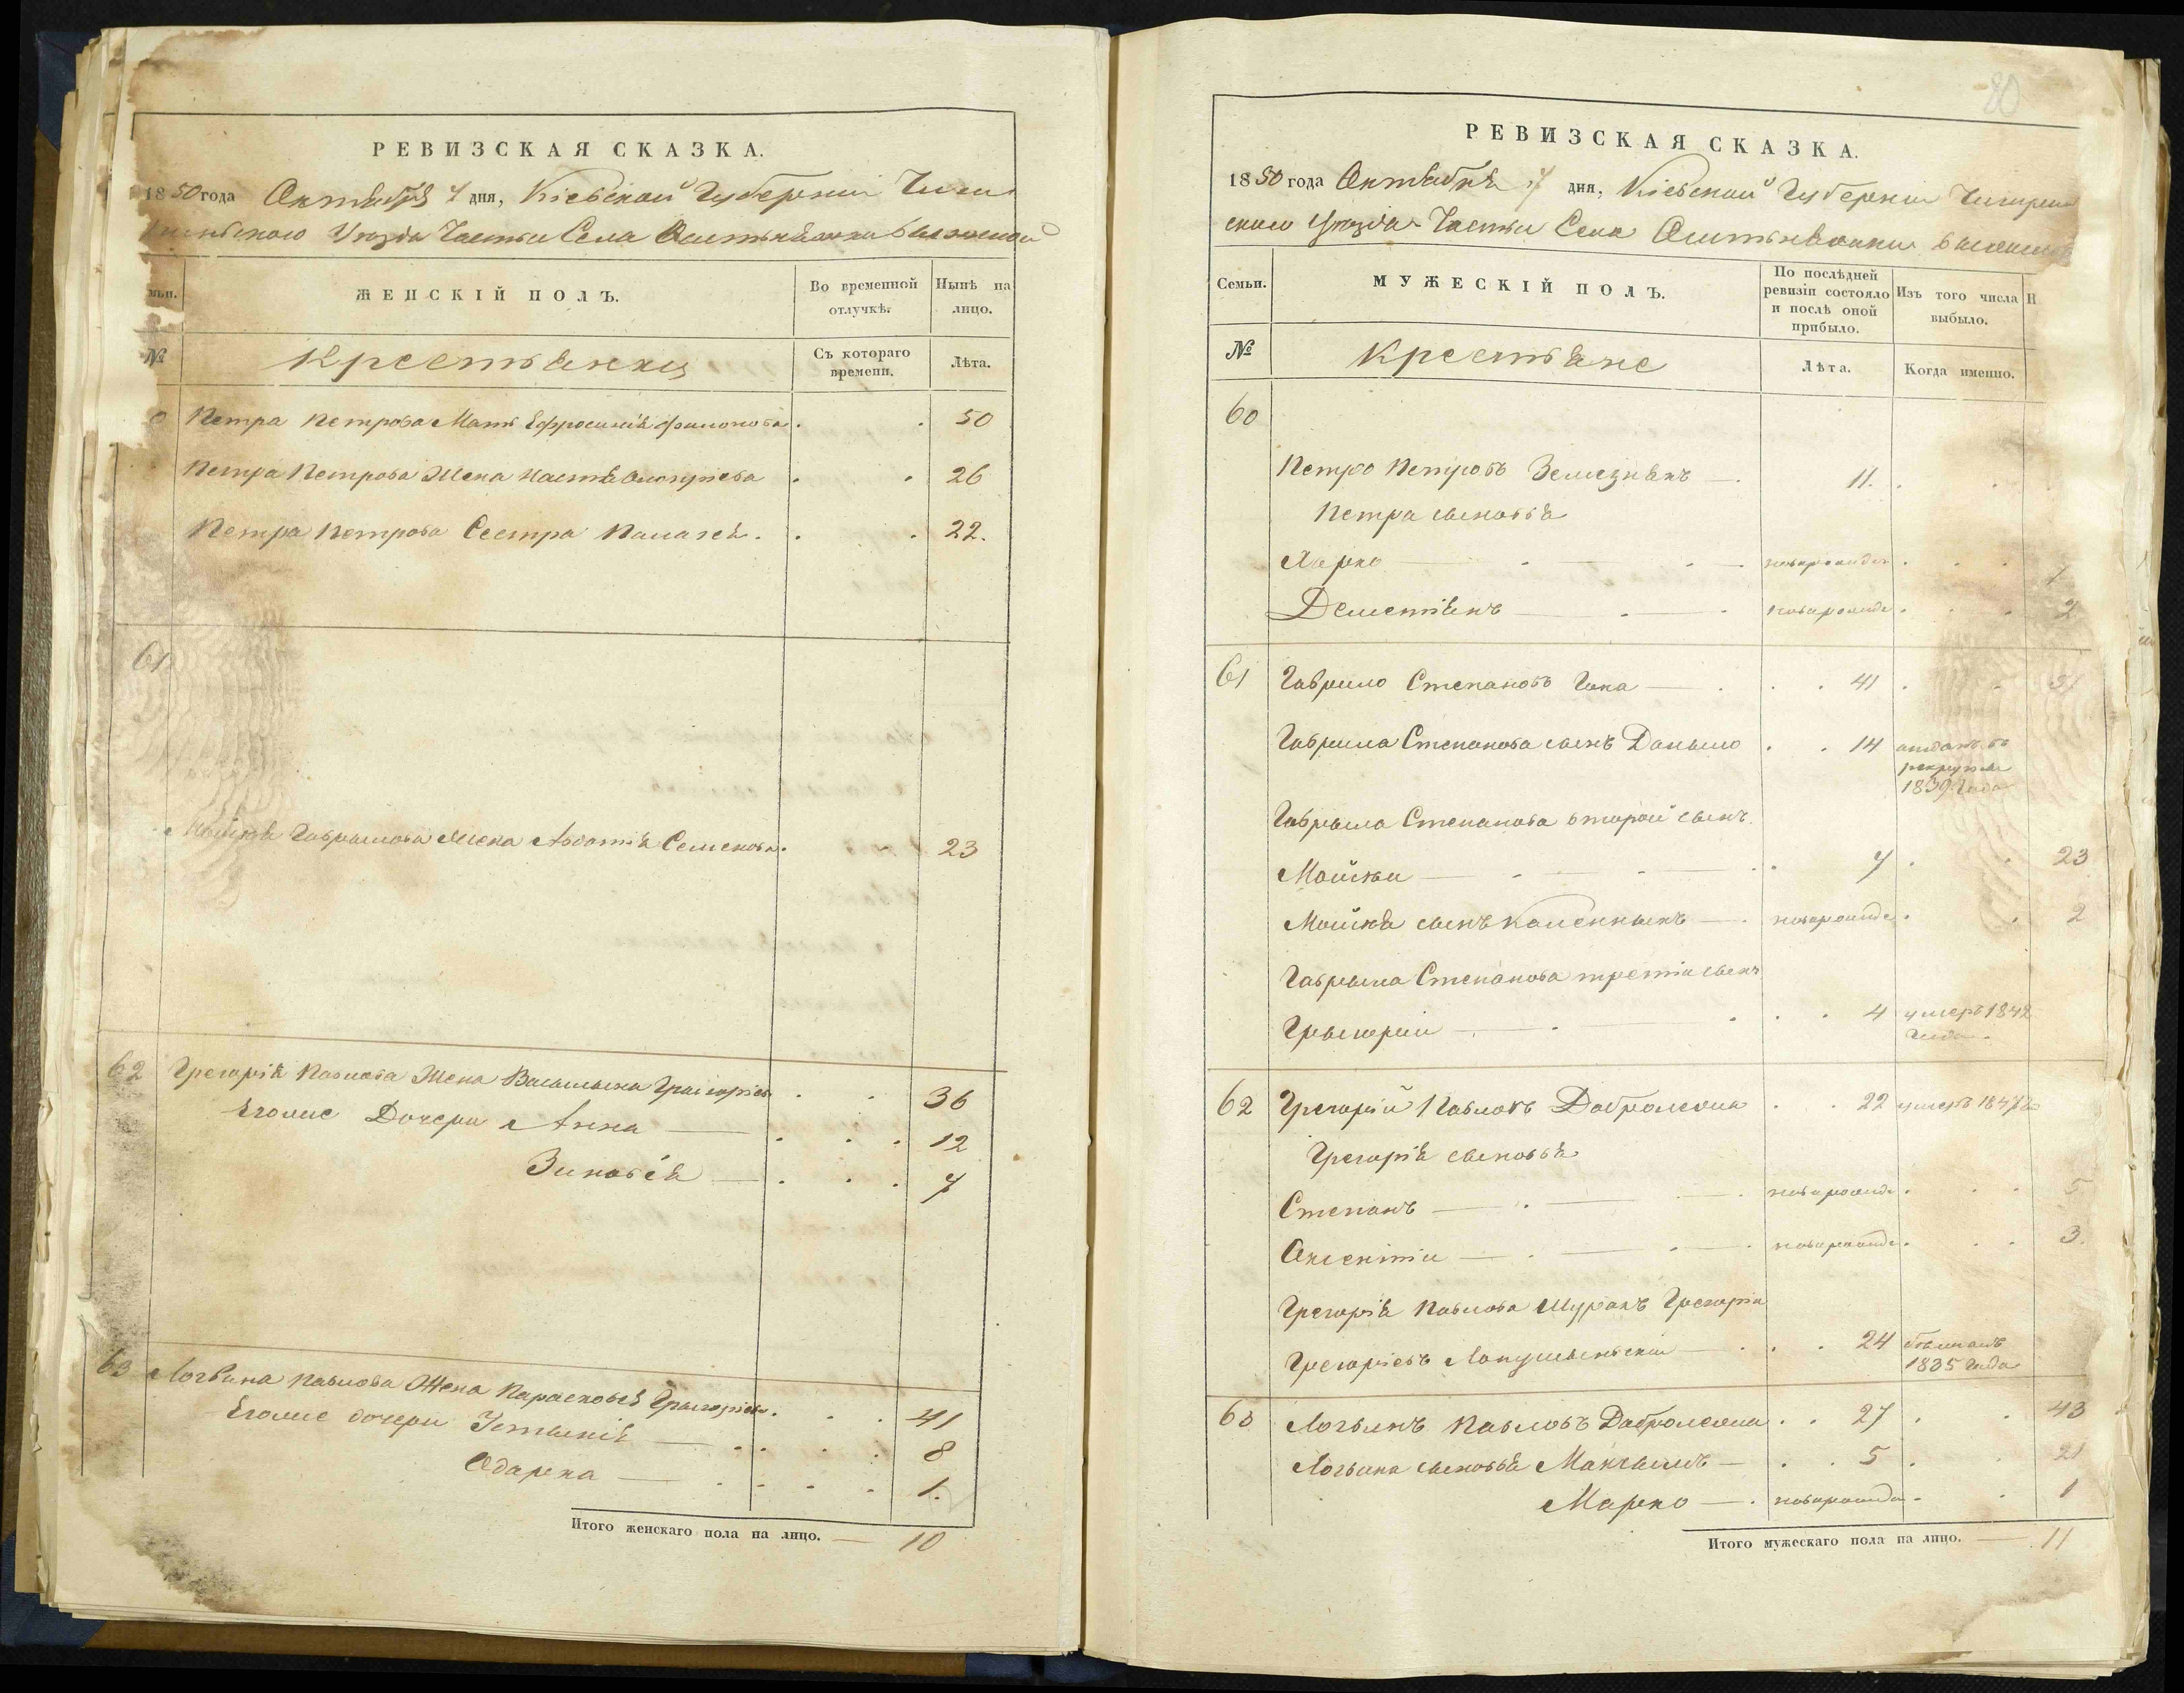 РЕВИЗСКАЯ СКАЗКА.
1850 года Октября 7 дня, Кіевской Губерніи Чиги
Уезда Части Села
ЖЕНСКІЙ ПОЛЪ.
Во временной отлучкѣ.
Нынѣ на лицо.
№
Крестьянки
Съ котораго времени.
Лѣта.
Петра Петрова Мать Ефросинія Филонова . . 50
Петра Петрова Жена Настя . . 26
Петра Петрова Сестра Палажя . . . 22.
61
Мойсѣя Гаврылова Жена Авдотія Семенова . 23
62 Грегорія Павлова Жена Васылына . . 36
Егоже Дочери Анна — . . . 12
Зиновія — . . . 7
63 Логвина Павлова Жена Парасковія . . . 41
Егоже дочери Устынія — . . . 8
Одарка — . . . . 1.
Итого женскаго пола на лицо. — 10
20
РЕВИЗСКАЯ СКАЗКА.
1850 года Октября 7 дня, Кіевской Губерніи Чигирин
скаго Уезда Части Села
Семьи.
МУЖЕСКІЙ ПОЛЪ.
По послѣдней ревизіи состояло и послѣ оной прибыло.
Изъ того числа выбыло.
Н
№
Крестьяне
Лѣта.
Когда именно.
60
Петро Петровъ — . 11. . .
Петра сыновья
Харко — новорожде . . . 1
Деметіянъ — новорожде . . . 2
61 Гаврило Степановъ — . . . 41 . .
Гаврыла Степанова сынъ Даныло . . 14 отданъ въ
рекруты
1839 Года
Гаврыла Степанова второй сынъ
Мойсѣи — . 7 . . 23
Мойсѣя сынъ — . новорожде . . 2
Гаврыла Степанова третіи сынъ
Грыгории — . . . 4 умеръ 1842
Года
62 Грегорій Павловъ . . 22 умеръ
Грегорія сыновья
Степанъ — новорожде . . . 5
Аксентіи — новорожде . . . 3.
Грегорія Павлова Шуринъ Грегорій
Грегоріевъ — . . . 24
1835 Года
63 Логвинъ Павловъ . . 27 . . 43
Логвина сыновья — . . 5 . . 21
Марко — . новорожде . . 1
Итого мужескаго пола на лицо. — 11